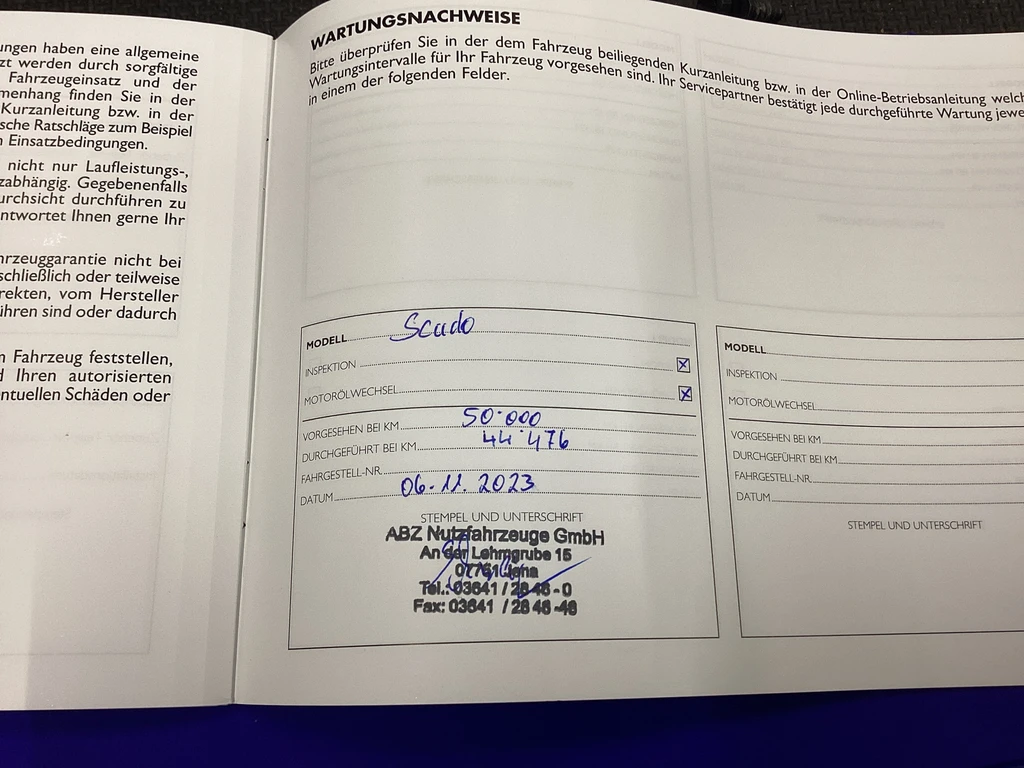 ungen haben eine allgemeine
zt werden durch sorgfältige
Fahrzeugeinsatz und der
menhang finden Sie in der
Kurzanleitung bzw. in der
sche Ratschläge zum Beispiel
n Einsatzbedingungen.
nicht nur Laufleistungs-,
zabhängig. Gegebenenfalls
urchsicht durchführen zu
ntwortet Ihnen gerne Ihr
hrzeuggarantie nicht bei
schließlich oder teilweise
rekten, vom Hersteller
ühren sind oder dadurch
m Fahrzeug feststellen,
d Ihren autorisierten
ntuellen Schäden oder
WARTUNGSNACHWEISE
Bitte überprüfen Sie in der dem Fahrzeug beiliegenden Kurzanleitung bzw. in der Online-Betriebsanleitung welch
Wartungsintervalle für Ihr Fahrzeug vorgesehen sind. Ihr Servicepartner bestätigt jede durchgeführte Wartung jewe
in einem der folgenden Felder.
MODELL Scudo
INSPEKTION
MOTORÖLWECHSEL
VORGESEHEN BEI KM 50.000
DURCHGEFÜHRT BEI KM 44.476
FAHRGESTELL-NR.
DATUM 06.11.2023
STEMPEL UND UNTERSCHRIFT
ABZ Nutzfahrzeuge GmbH
An der Lehmgrube 15
Jena
Tel.: 03641 / 28 48 - 0
Fax: 03641 / 28 48 -48
MODELL
INSPEKTION
MOTORÖLWECHSEL
VORGESEHEN BEI KM
DURCHGEFÜHRT BEI KM
FAHRGESTELL-NR.
DATUM
STEMPEL UND UNTERSCHRIFT